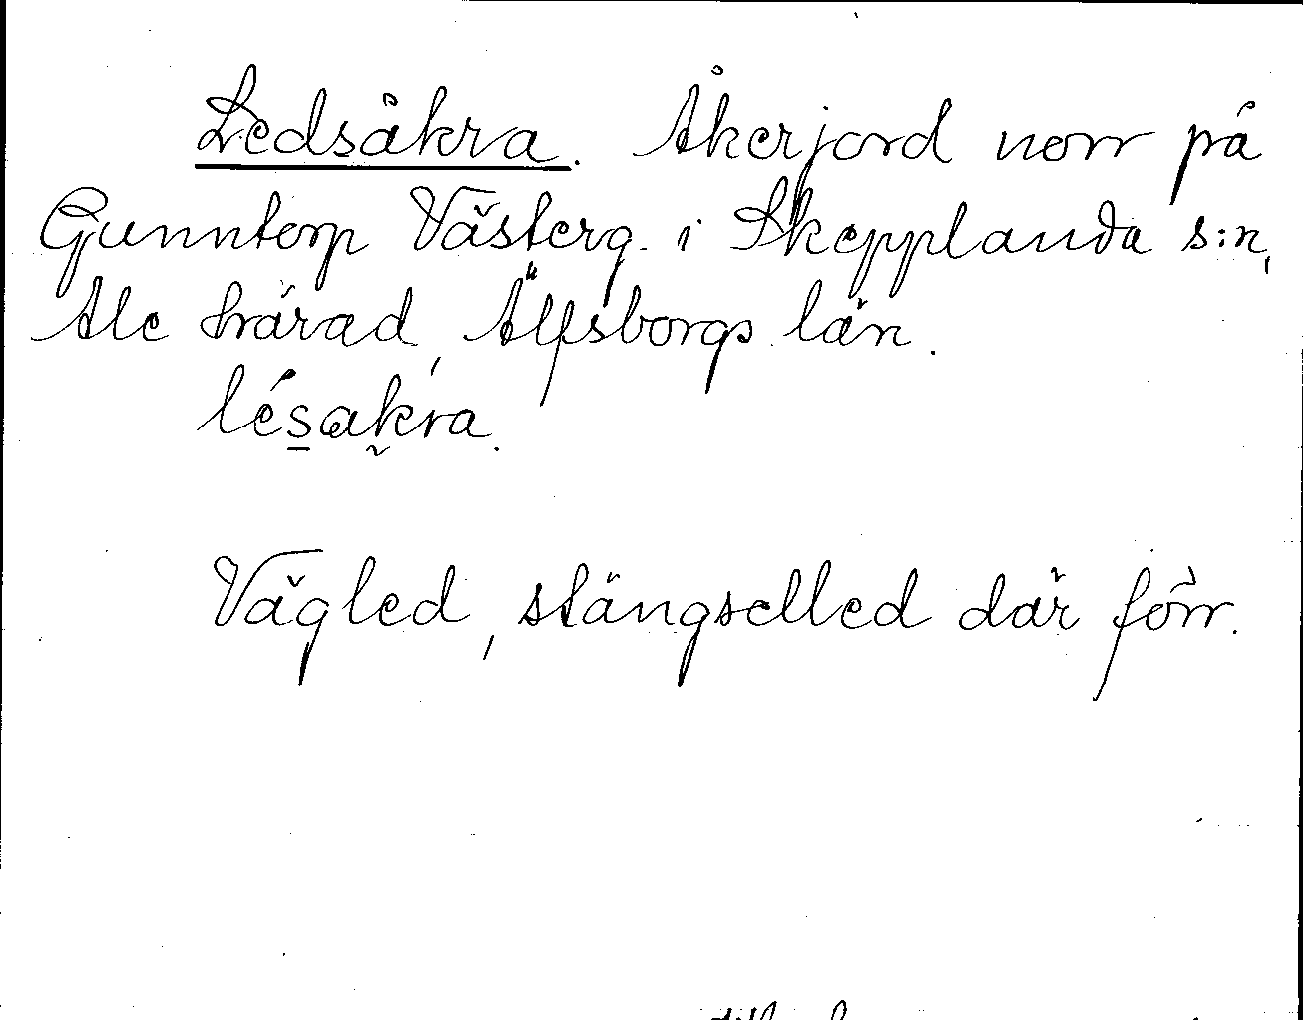 Ledsåkra. Åkerjord norr på
Gunntorp Västerg. i Skepplanda s:n,
Ale härad, Älfsborgs län.
lésakra.
Vägled, stängselled där förr.